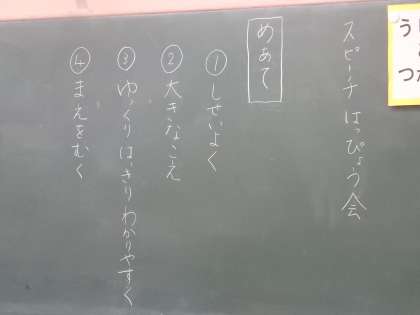 スピーチ はっぴょう会
めあて
①しせいよく
②大きなこえ
③ゆっくりはっきりわかりやすく
④まえをむく